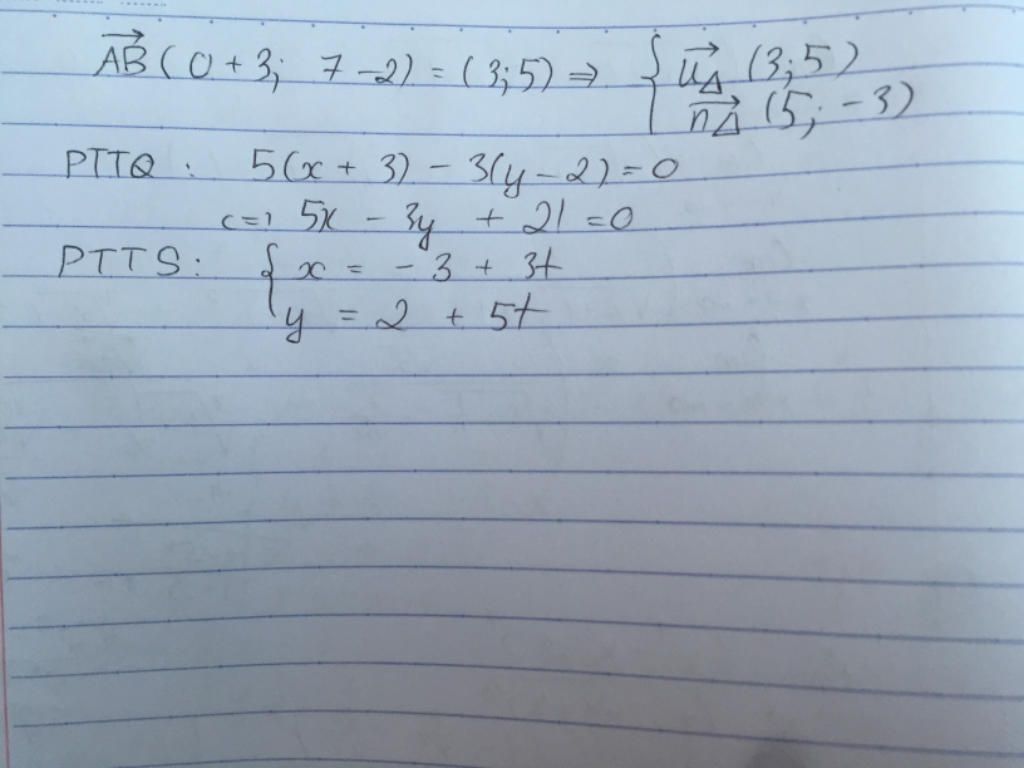 AB→ (0 + 3; 7 - 2) = (3; 5) ⇒ { u→Δ (3; 5)
n→Δ (5; -3)
PTTQ : 5(x + 3) - 3(y - 2) = 0
<=> 5x - 3y + 21 = 0
PTTS : { x = - 3 + 3t
y = 2 + 5t